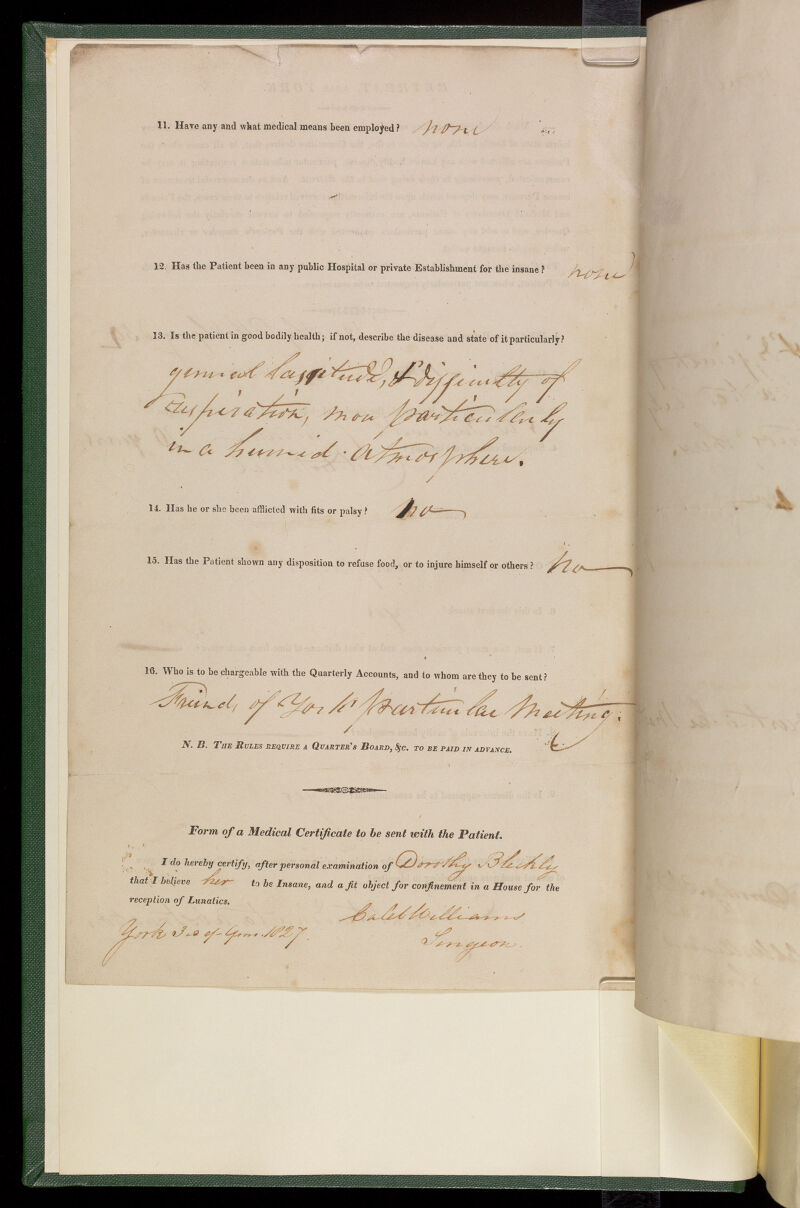 11. Have any and what medical means been employed? none
12. Has the Patient been in any public Hospital or private Establishment for the insane? none
13. Is the patient in good bodily health; if not, describe the disease and state of it particularly?
general lassitude, & difficulty of
respiration, more particularly
in a humid atmosphere.
14. Has he or she been afflicted with fits or palsy? no
15. Has the Patient shown any disposition to refuse food, or to injure himself or others? no
16. Who is to be chargeable with the Quarterly Accounts, and to whom are they to be sent?
Friends of York particular Meeting.
N. B. The Rules require a Quarter's Board, &c. to be paid in advance.
Form of a Medical Certificate to be sent with the Patient.
I do hereby certify, after personal examination of Dorothy Bleckly
that I believe her to be Insane, and a fit object for confinement in a House for the
reception of Lunatics.
Caleb Williams
York 3 of 1827.
Surgeon.